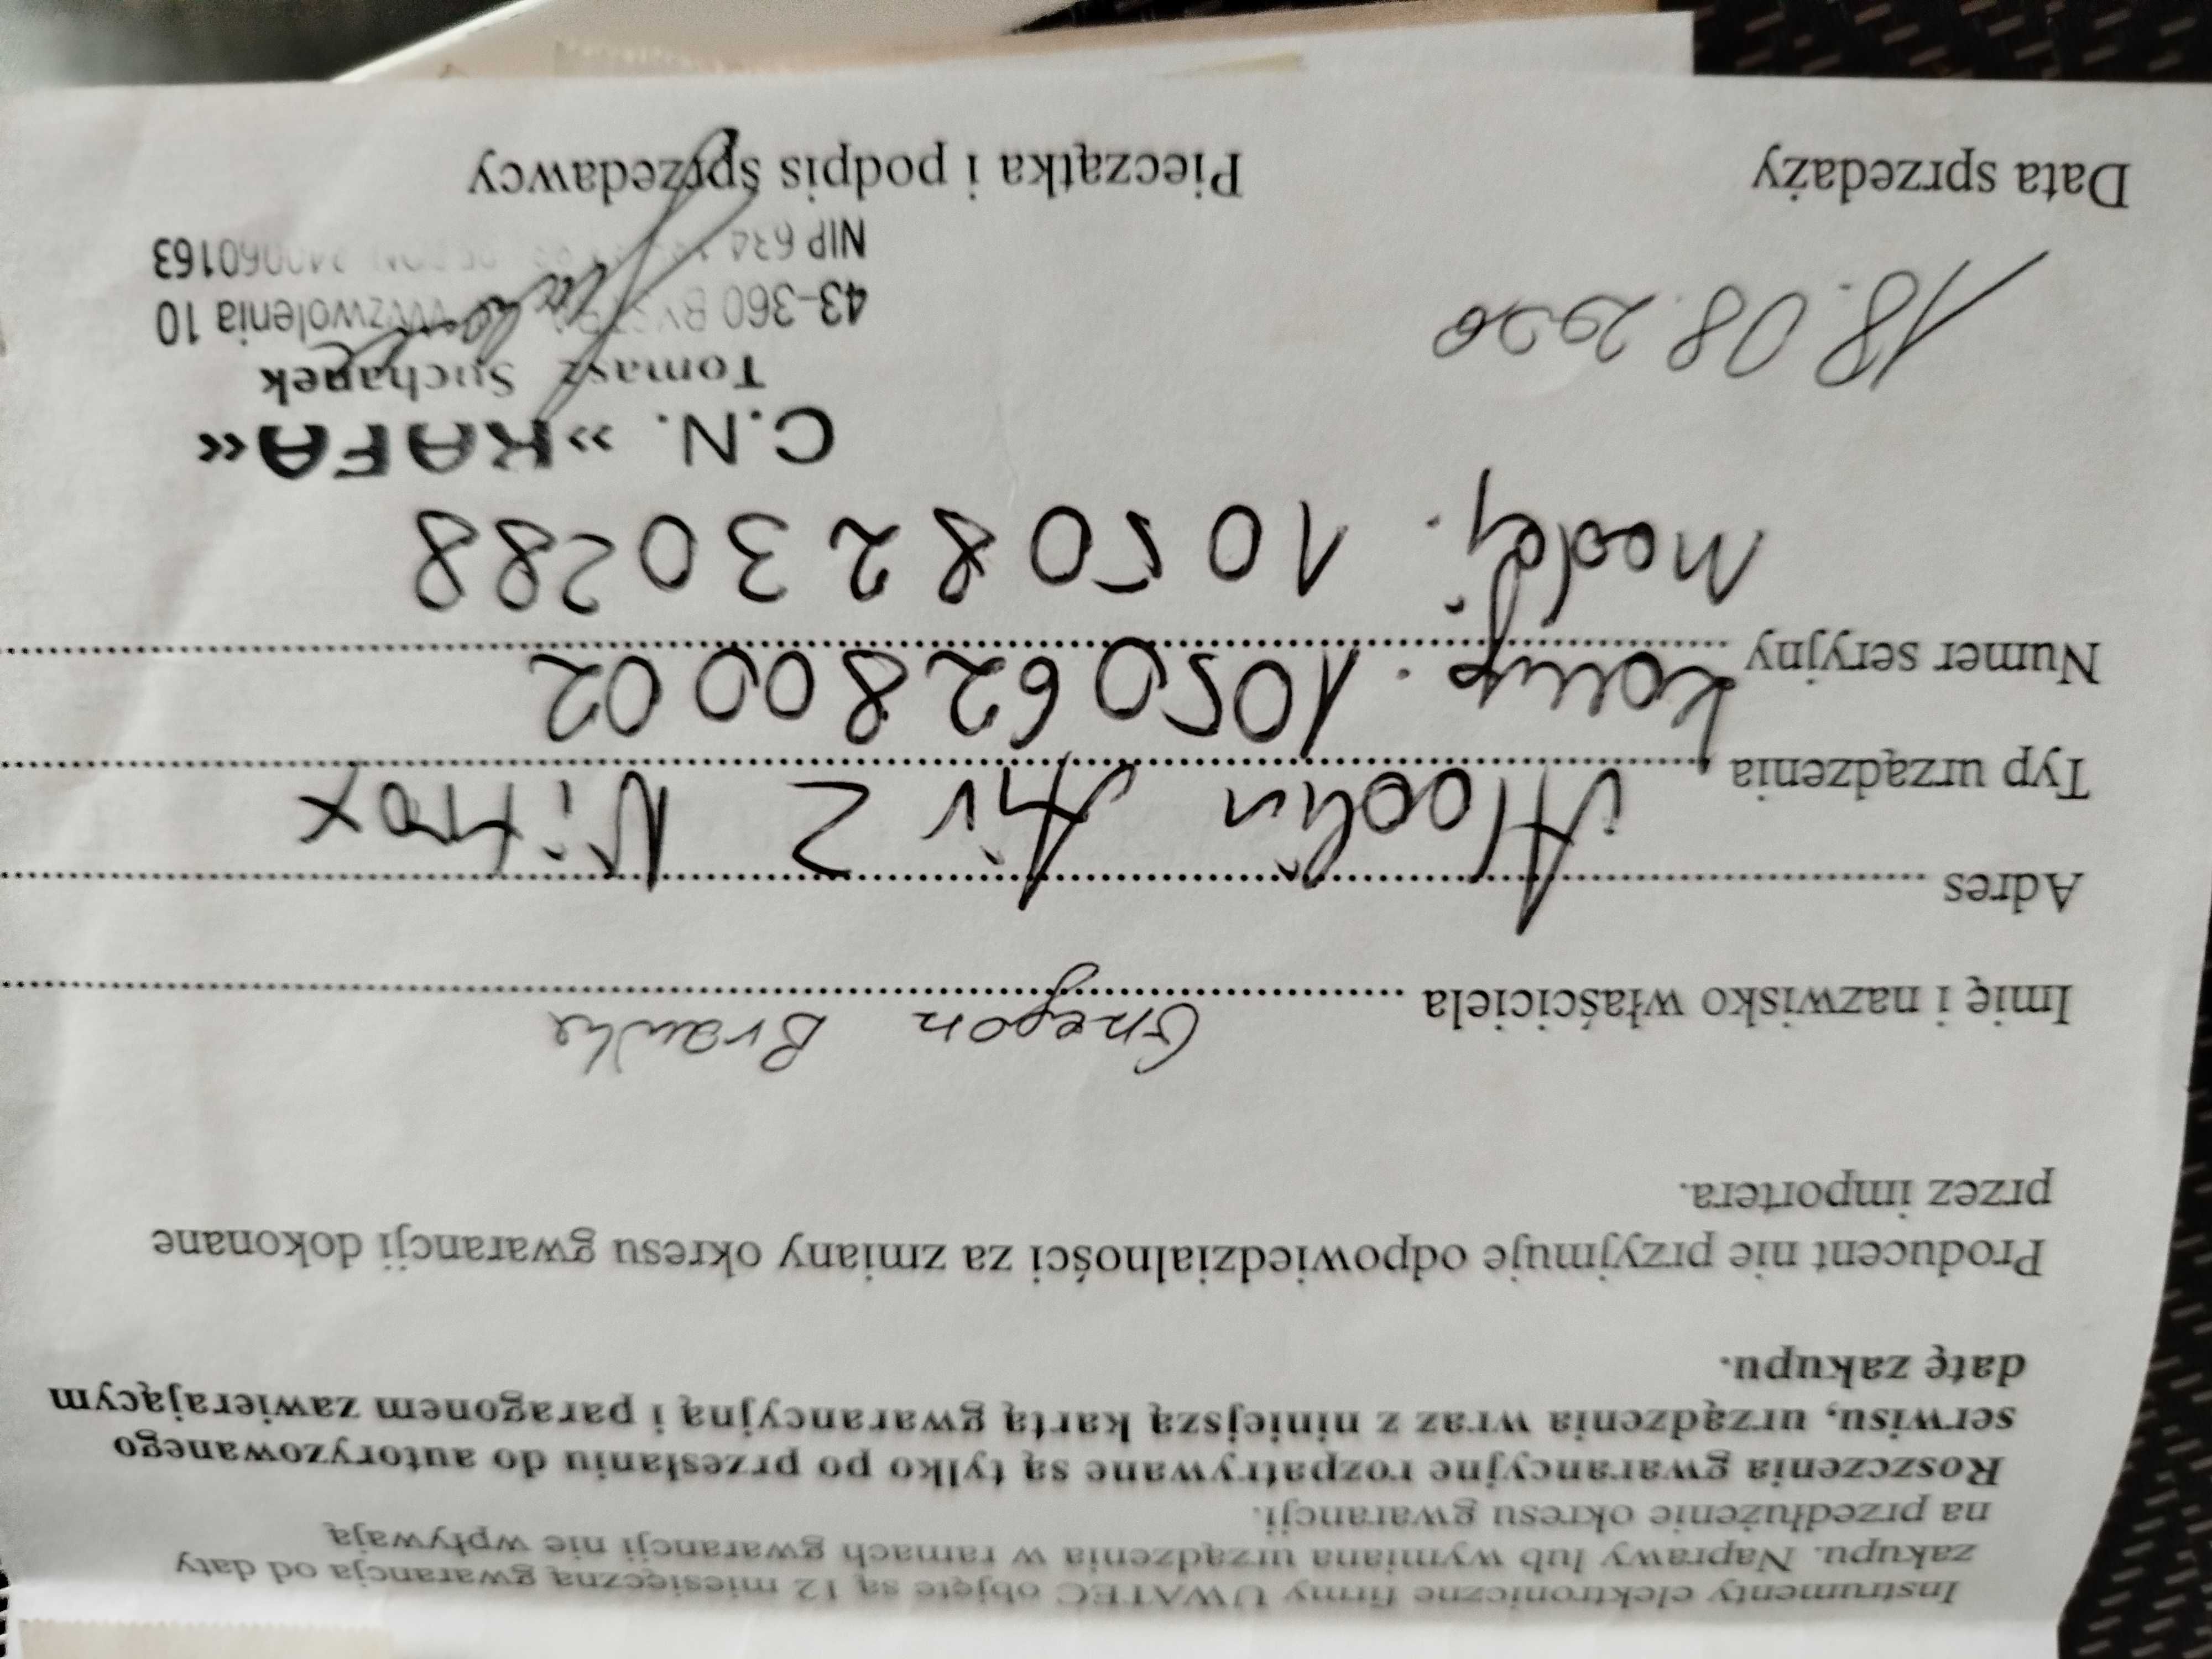 Instrumenty elektroniczne firmy UWATEC objęte są 12 miesięczną gwarancją od daty
zakupu. Naprawy lub wymiana urządzenia w ramach gwarancji nie wpływają
na przedłużenie okresu gwarancji.
Roszczenia gwarancyjne rozpatrywane są tylko po przesłaniu do autoryzowanego
serwisu, urządzenia wraz z niniejszą kartą gwarancyjną i paragonem zawierającym
datę zakupu.
Producent nie przyjmuje odpowiedzialności za zmiany okresu gwarancji dokonane
przez importera.
Imię i nazwisko właściciela
Adres
Typ urządzenia Aladin Air Z Nitrox
Numer seryjny komp. 1050628 0002
nadaj. 1050 8230288
C.N. »KAFA«
Tomasz Suchanek
43-360 BYSTRA Wyzwolenia 10
NIP 634
18.08.2000
Data sprzedaży Pieczątka i podpis sprzedawcy